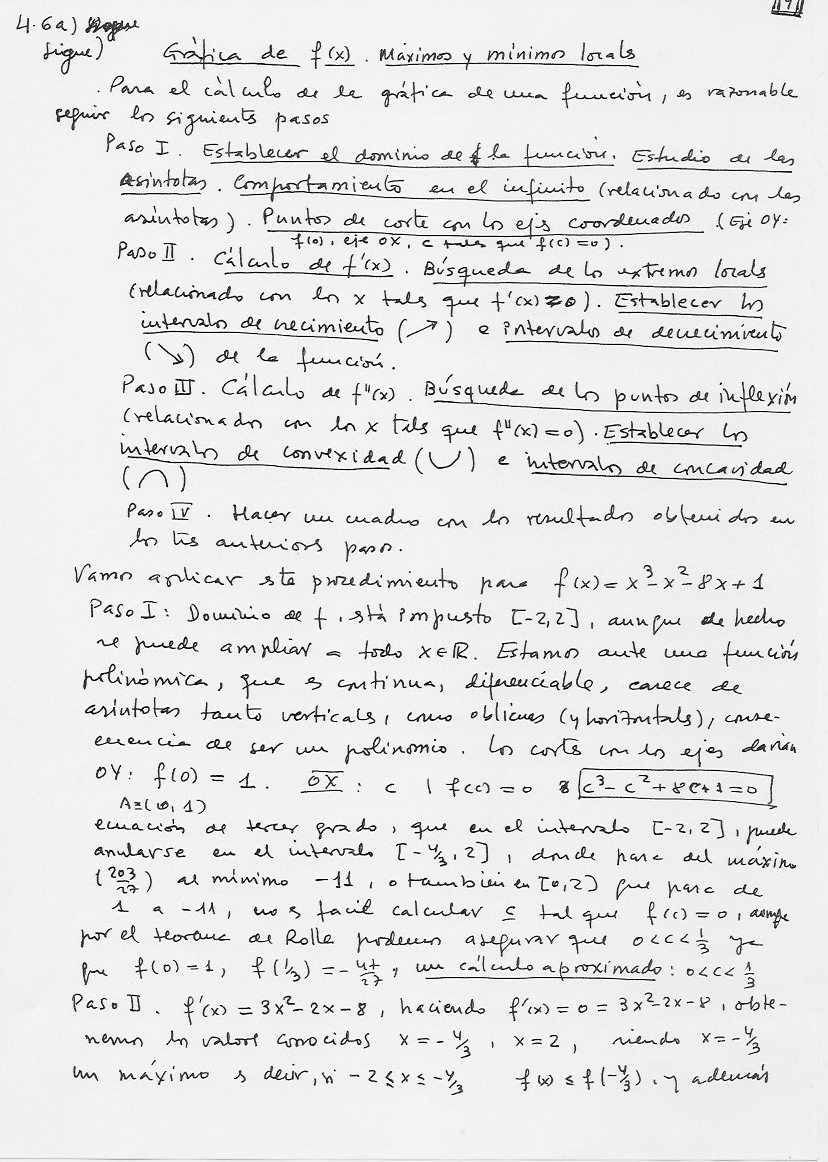 4.6a)
sigue) Gráfica de f(x). Máximos y mínimos locals
. Para el cálculo de la gráfica de una función, es razonable
seguir los siguients pasos
Paso I. Establecer el dominio de la función. Estudio de las
asíntotas. Comportamiento en el infinito (relacionado con las
asíntotas). Puntos de corte con los ejes coordenados (Eje OY:
f(0), eje OX, c tales que f(c)=0).
Paso II. Cálculo de f'(x). Búsqueda de los extremos locals
(relacionado con los x tals que f'(x)=0). Establecer los
intervalos de crecimiento (↗) e intervalos de decrecimiento
(↘) de la función.
Paso III. Cálculo de f"(x). Búsqueda de los puntos de inflexión
(relacionados con los x tals que f"(x)=0). Establecer los
intervalos de convexidad (∪) e intervalos de concavidad
(∩)
Paso IV. Hacer un cuadro con los resultados obtenidos en
los trs anteriors pasos.
Vamos aplicar este procedimiento para f(x)=x³-x²-8x+1
Paso I: Dominio de f, está impuesto [-2,2], aunque de hecho
se puede ampliar a todo x∈ℝ. Estamos ante una función
polinómica, que es continua, diferenciable, carece de
asíntotas tanto verticals, como oblicuas (y horizontals), conse-
cuencia de ser un polinomio. Los corts con los ejes darían
OY: f(0) = 1. OX : c | f(c)=0 c³-c²+8c+1=0
A≡(0,1)
ecuación de tercer grado, que en el intervalo [-2,2], puede
anularse en el intervalo [-4/3,2], donde pasa del máximo
(203/27) al mínimo -11, o también en [0,2] que pasa de
1 a -11, no es facil calcular c tal que f(c)=0, aunque
por el teorema de Rolle podemos asegurar que 0<c<1/3 ya
que f(0)=1, f(1/3)=-47/27, un cálculo aproximado: 0<c<1/3
Paso II. f'(x)=3x²-2x-8, haciendo f'(x)=0=3x²-2x-8, obte-
nemos los valors conocidos x=-4/3, x=2, siendo x=-4/3
un máximo es decir, si -2≤x≤-4/3 f(x)≤f(-4/3), y además